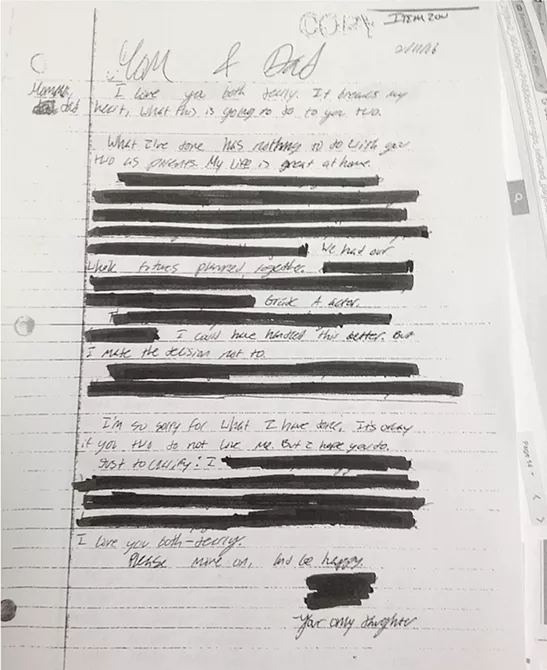 COPY
ITEM 20U
Mom & Dad
Momma, dad
I love you both dearly. It breaks my
heart, what this is going to do to you two.
What I've done has nothing to do with you
two as parents. My life is great at home.
We had our
whole futures planned, together.
Grade A actor.
I could have handled this better. But
I make the decision not to.
I'm so sorry for what I have done. It's okay
if you two do not love me. But I hope you do.
Just to clarify: I
I love you both dearly.
Please move on, and be happy.
Your only daughter
Page 14